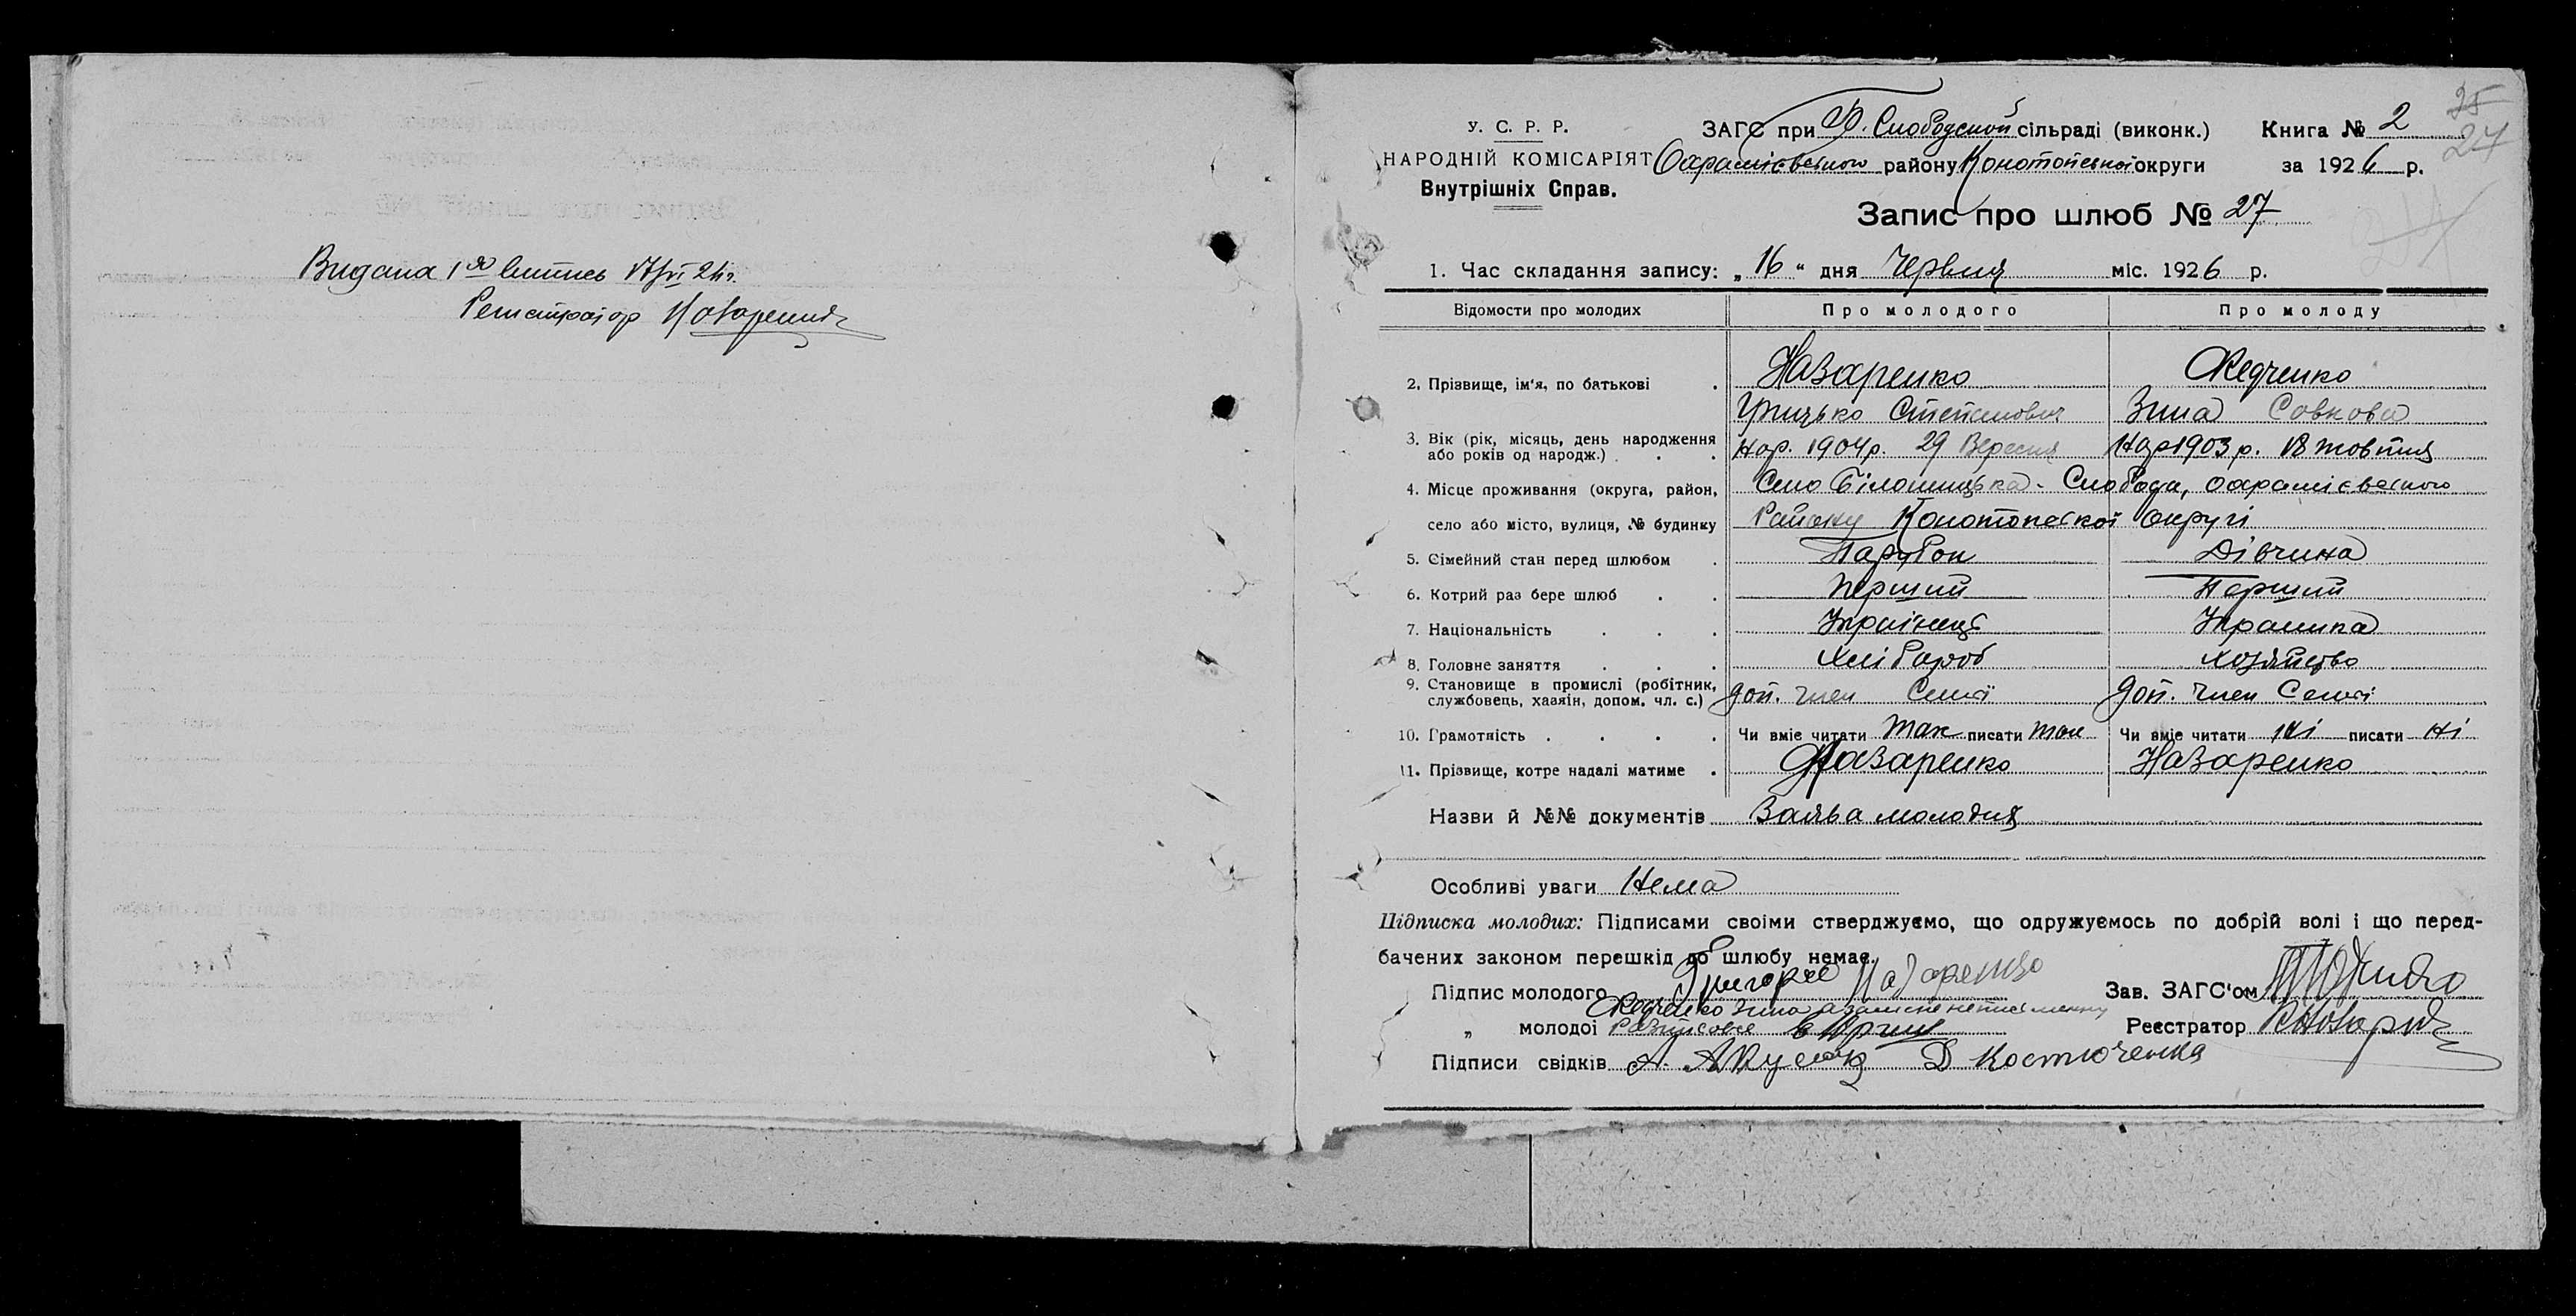 Видана 1
Реєстратор
35
27
У. С. Р. Р.
НАРОДНІЙ КОМІСАРІЯТ
Внутрішніх Справ.
ЗАГС при Б. Слободской сільраді (виконк.) Книга № 2
району Конотопської округи за 1926 р.
Запис про шлюб № 27
1. Час складання запису: „16“ дня Червня міс. 1926 р.
Відомости про молодих Про молодого Про молоду
2. Прізвище, ім'я, по батькові . Назаренко Федченко
Грицько Степанович Зина Савкова
3. Вік (рік, місяць, день народження
або років од народж.) . . . Нар. 1904 р. 29 Вересня Нар 1903 р. 18 жовтня
4. Місце проживання (округа, район, Село Білошицька-Слобода,
село або місто, вулиця, № будинку Району Конотопской округі
5. Сімейний стан перед шлюбом . Парубок Дівчина
6. Котрий раз бере шлюб . . Перший Перший
7. Національність . . . Украінець Украинка
8. Головне заняття . . . Хлібороб хозяйство
9. Становище в промислі (робітник,
службовець, хазяін, допом. чл. с.) доп. член Семї доп. член Семї
10. Грамотність . . . . Чи вміє читати так писати так Чи вміє читати ні писати ні
11. Прізвище, котре надалі матиме . Назаренко Назаренко
Назви й №№ документів Заява молодих
Особливі уваги Нема
Підписка молодих: Підписами своіми стверджуємо, що одружуємось по добрій волі і що перед-
бачених законом перешкід до шлюбу немає.
Підпис молодого Григорий Назаренко Зав. ЗАГС'ом
Федченко Зина
„ молодоі Реєстратор
Підписи свідків Д Костюченка